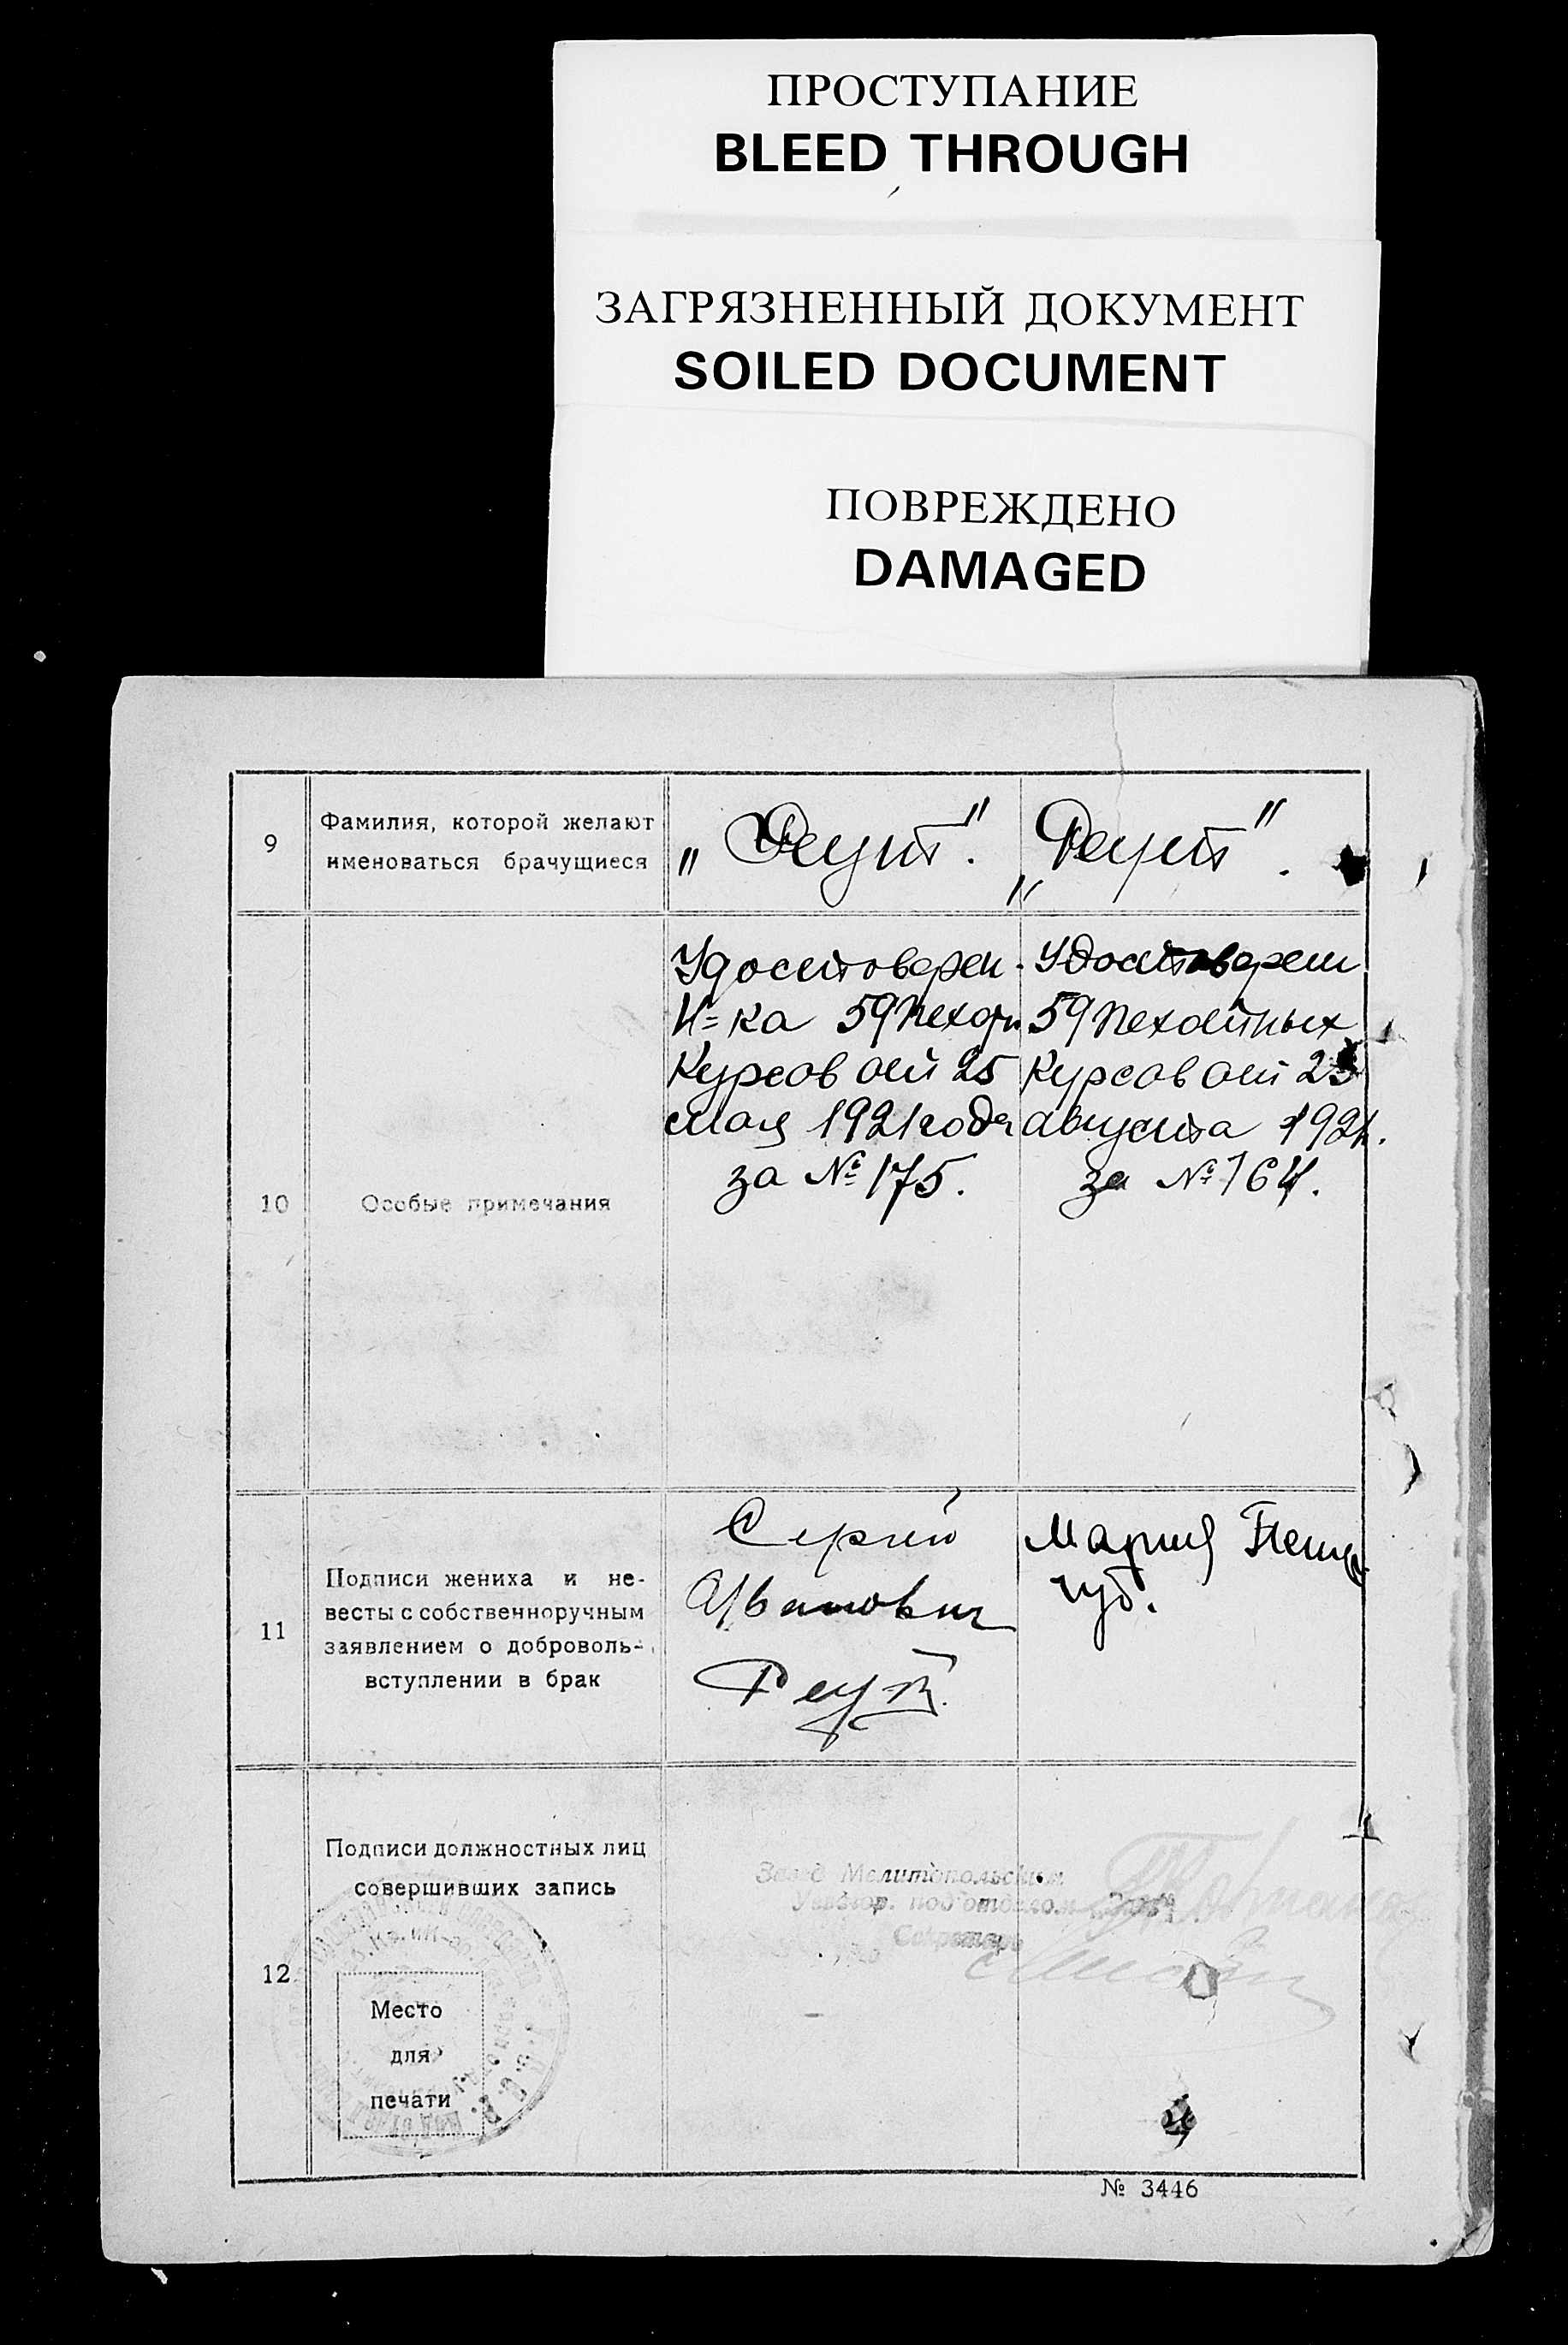 ПРОСТУПАНИЕ
BLEED THROUGH
ЗАГРЯЗНЕННЫЙ ДОКУМЕНТ
SOILED DOCUMENT
ПОВРЕЖДЕНО
DAMAGED
9
Фамилия, которой желают
именоваться брачущиеся
„Реут".
„Реут".
10
Особые примечания
Удостоверен.
Н=ка 59 Пехотн
Курсов от 25
мая 1921 года
за № 175.
Удостоверени
59 Пехотных
Курсов от 23
августа 1921.
за № 164.
11
Подписи жениха и не-
весты с собственноручным
заявлением о доброволь-
вступлении в брак
Сергей
Иванович
Реут.
Мария
12
Подписи должностных лиц
совершивших запись
Место
для
печати
Завед Мелитопольским
Уездгор. под'отделом
Секретарь
№ 3446